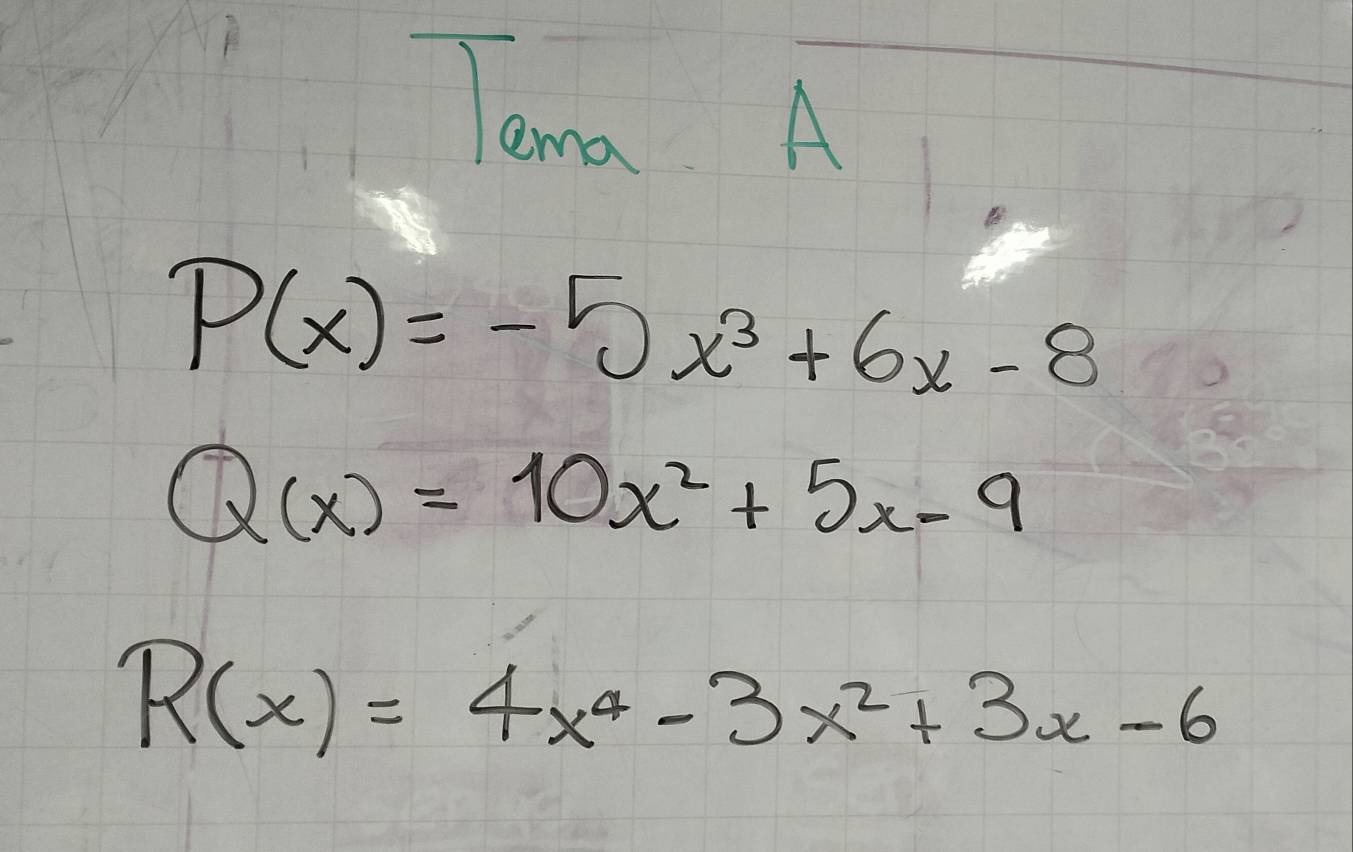 Tema A
P(x) = -5x³ + 6x - 8
Q(x) = 10x² + 5x - 9
R(x) = 4x⁴ - 3x² + 3x - 6